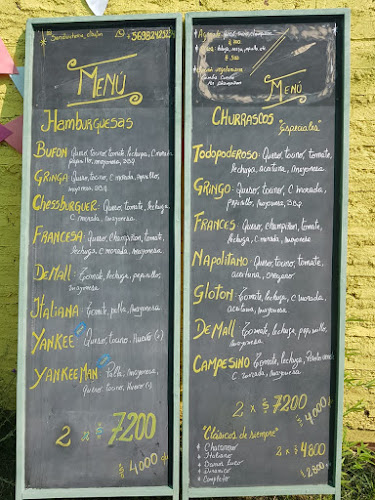 Sandwicheria
MENÚ
HAMBURGUESAS
BUFON: Queso, tocino, tomate, lechuga, C. morada
pepinillo, mayonesa, BBQ
GRINGA: Queso, tocino, C. morada, pepinillo,
mayonesa, BBQ
CHESSBURGUER: Queso, tomate, lechuga
C. morada, mayonesa
FRANCESA: Queso, champiñon, tomate,
lechuga, C. morada, mayonesa
DE MALL: Tomate, lechuga, pepinillo,
mayonesa
ITALIANA: Tomate, palta, mayonesa
YANKEE: Queso, tocino, Huevo (2)
YANKEE MAN: Palta, mayonesa,
Queso, tocino, Huevo (2)
2 x $ 7200
$ 4000
MENÚ
CHURRASCOS
"Especiales"
TODOPODEROSO: Queso, tocino, tomate,
lechuga, aceituna, mayonesa
GRINGO: Queso, tocino, C morada,
pepinillo, mayonesa, BBQ
FRANCES: Queso, champiñon, tomate,
lechuga, C morada, mayonesa
NAPOLITANO: Queso, tocino, tomate,
aceituna, oregano
GLOTON: Tomate, lechuga, C morada,
aceituna, mayonesa
DE MALL: Tomate, lechuga, pepinillo,
mayonesa
CAMPESINO: Tomate, lechuga,
C morada, mayonesa
2 x $ 7200
$ 4000
"Clásicos de siempre"
Churrasco
Italiano
Barros Luco
Dinamico
Completo
2 x $ 4800
$ 2800